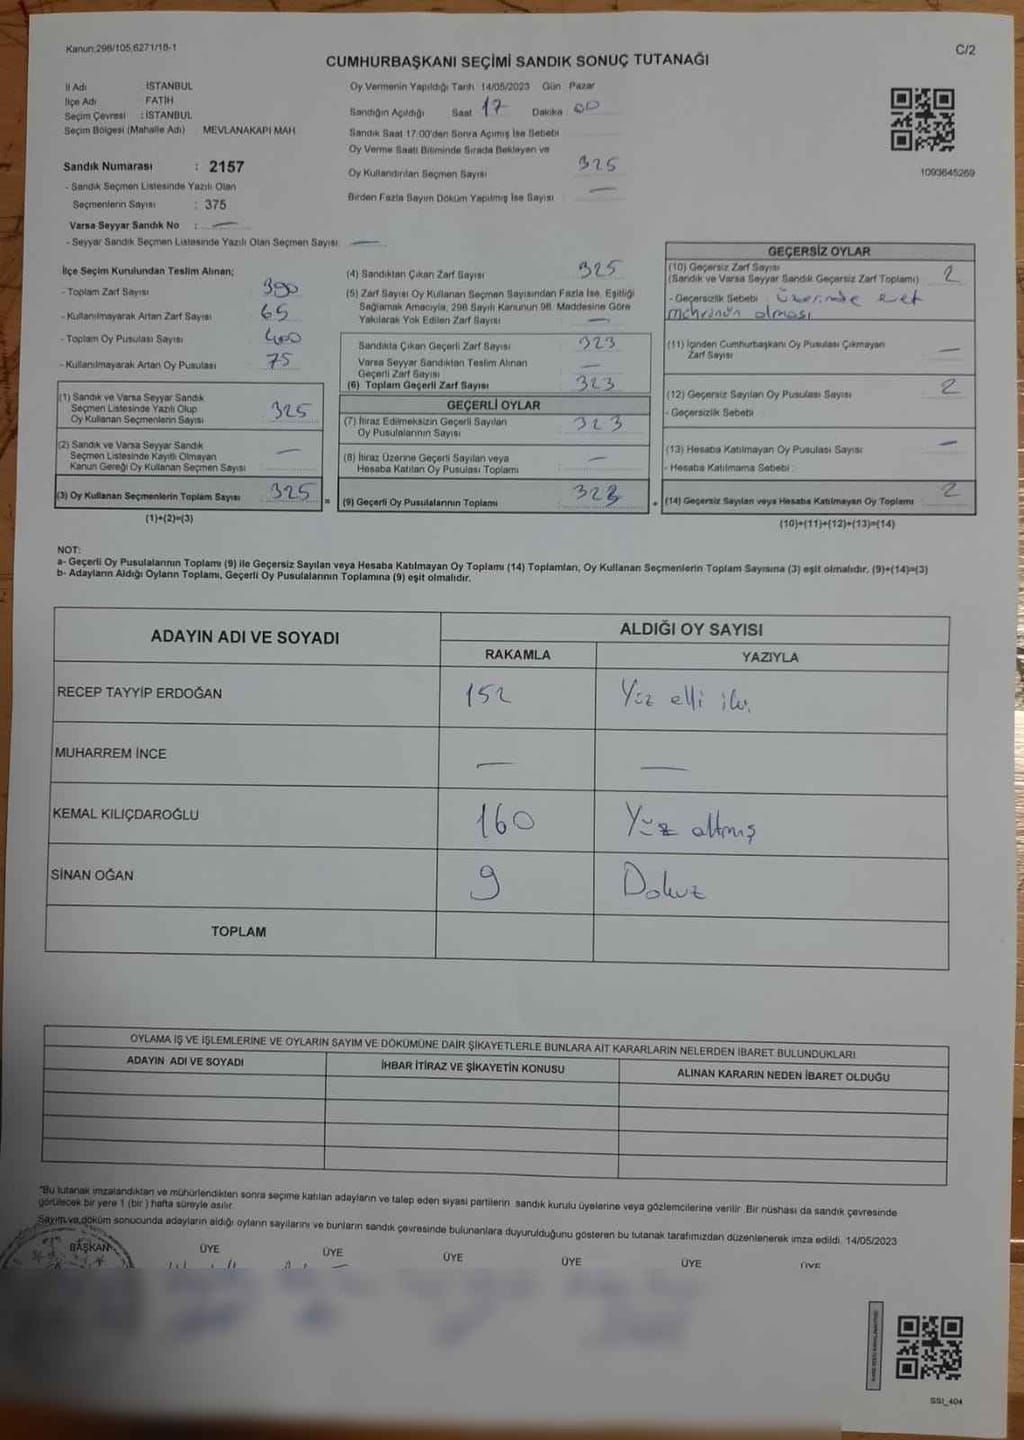 Kanun:298/105,6271/18-1
C/2
CUMHURBAŞKANI SEÇİMİ SANDIK SONUÇ TUTANAĞI
İl Adı İSTANBUL
İlçe Adı FATİH
Seçim Çevresi : İSTANBUL
Seçim Bölgesi (Mahalle Adı) MEVLANAKAPI MAH.
Sandık Numarası : 2157
- Sandık Seçmen Listesinde Yazılı Olan
Seçmenlerin Sayısı : 375
Varsa Seyyar Sandık No : —
- Seyyar Sandık Seçmen Listesinde Yazılı Olan Seçmen Sayısı —
Oy Vermenin Yapıldığı Tarih 14/05/2023 Gün Pazar
Sandığın Açıldığı Saat 17 Dakika 00
Sandık Saat 17:00'den Sonra Açılmış İse Sebebi
Oy Verme Saati Bitiminde Sırada Bekleyen ve
Oy Kullandırılan Seçmen Sayısı 325
Birden Fazla Sayım Döküm Yapılmış İse Sayısı —
1093645269
İlçe Seçim Kurulundan Teslim Alınan;
- Toplam Zarf Sayısı 390
- Kullanılmayarak Artan Zarf Sayısı 65
- Toplam Oy Pusulası Sayısı 400
- Kullanılmayarak Artan Oy Pusulası 75
(1) Sandık ve Varsa Seyyar Sandık
Seçmen Listesinde Yazılı Olup
Oy Kullanan Seçmenlerin Sayısı 325
(2) Sandık ve Varsa Seyyar Sandık
Seçmen Listesinde Kayıtlı Olmayan
Kanun Gereği Oy Kullanan Seçmen Sayısı —
(3) Oy Kullanan Seçmenlerin Toplam Sayısı 325
(1)+(2)=(3)
(4) Sandıktan Çıkan Zarf Sayısı 325
(5) Zarf Sayısı Oy Kullanan Seçmen Sayısından Fazla İse, Eşitliği
Sağlamak Amacıyla, 298 Sayılı Kanunun 98. Maddesine Göre
Yakılarak Yok Edilen Zarf Sayısı —
Sandıkta Çıkan Geçerli Zarf Sayısı 323
Varsa Seyyar Sandıktan Teslim Alınan
Geçerli Zarf Sayısı —
(6) Toplam Geçerli Zarf Sayısı 323
GEÇERLİ OYLAR
(7) İtiraz Edilmeksizin Geçerli Sayılan
Oy Pusulalarının Sayısı 323
(8) İtiraz Üzerine Geçerli Sayılan veya
Hesaba Katılan Oy Pusulası Toplamı —
= (9) Geçerli Oy Pusulalarının Toplamı 323 +
GEÇERSİZ OYLAR
(10) Geçersiz Zarf Sayısı
(Sandık ve Varsa Seyyar Sandık Geçersiz Zarf Toplamı) 2
- Geçersizlik Sebebi : Üzerinde evet
mührünün olması
(11) İçinden Cumhurbaşkanı Oy Pusulası Çıkmayan
Zarf Sayısı —
(12) Geçersiz Sayılan Oy Pusulası Sayısı 2
- Geçersizlik Sebebi :
(13) Hesaba Katılmayan Oy Pusulası Sayısı —
- Hesaba Katılmama Sebebi :
(14) Geçersiz Sayılan veya Hesaba Katılmayan Oy Toplamı 2
(10)+(11)+(12)+(13)=(14)
NOT:
a- Geçerli Oy Pusulalarının Toplamı (9) ile Geçersiz Sayılan veya Hesaba Katılmayan Oy Toplamı (14) Toplamları, Oy Kullanan Seçmenlerin Toplam Sayısına (3) eşit olmalıdır. (9)+(14)=(3)
b- Adayların Aldığı Oyların Toplamı, Geçerli Oy Pusulalarının Toplamına (9) eşit olmalıdır.
ADAYIN ADI VE SOYADI
ALDIĞI OY SAYISI
RAKAMLA YAZIYLA
RECEP TAYYİP ERDOĞAN 152 Yüz elli iki
MUHARREM İNCE — —
KEMAL KILIÇDAROĞLU 160 Yüz altmış
SİNAN OĞAN 9 Dokuz
TOPLAM
OYLAMA İŞ VE İŞLEMLERİNE VE OYLARIN SAYIM VE DÖKÜMÜNE DAİR ŞİKAYETLERLE BUNLARA AİT KARARLARIN NELERDEN İBARET BULUNDUKLARI
ADAYIN ADI VE SOYADI İHBAR İTİRAZ VE ŞİKAYETİN KONUSU ALINAN KARARIN NEDEN İBARET OLDUĞU
"Bu tutanak imzalandıktan ve mühürlendikten sonra seçime katılan adayların ve talep eden siyasi partilerin sandık kurulu üyelerine veya gözlemcilerine verilir. Bir nüshası da sandık çevresinde
görülecek bir yere 1 (bir) hafta süreyle asılır.
Sayım ve döküm sonucunda adayların aldığı oyların sayılarını ve bunların sandık çevresinde bulunanlara duyurulduğunu gösteren bu tutanak tarafımızdan düzenlenerek imza edildi. 14/05/2023
BAŞKAN ÜYE ÜYE ÜYE ÜYE ÜYE ÜYE
SSI_404